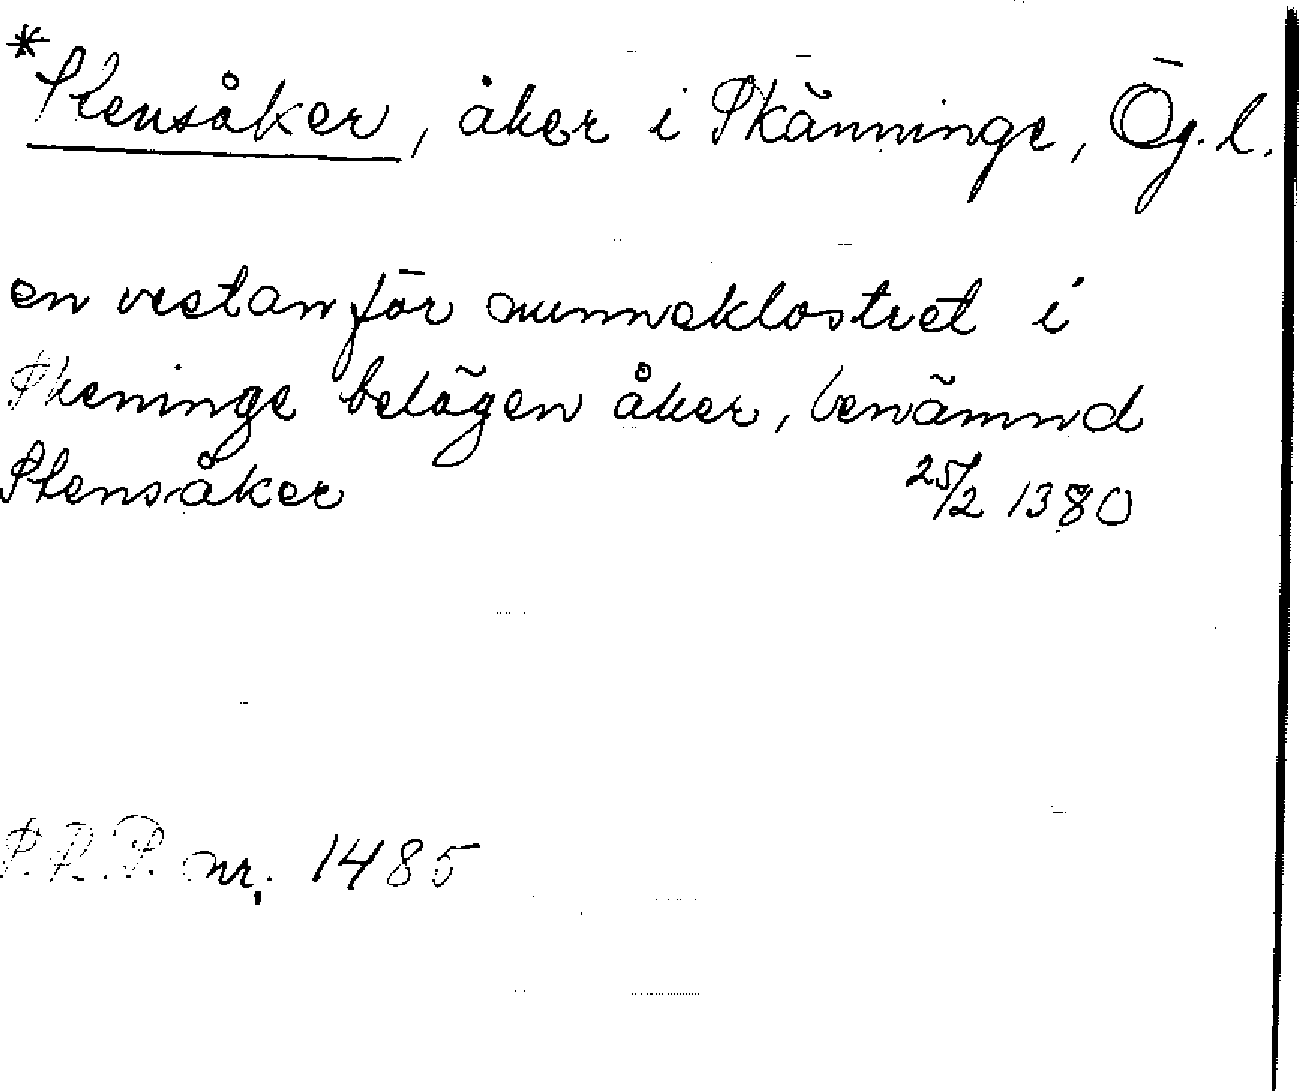 *Stensåker, åker i Skänninge, Ög. l.
en vestanför nunneklostret i
Skeninge belägen åker, benämnd
Stensåker 25/2 1380
S.R.P. nr. 1485